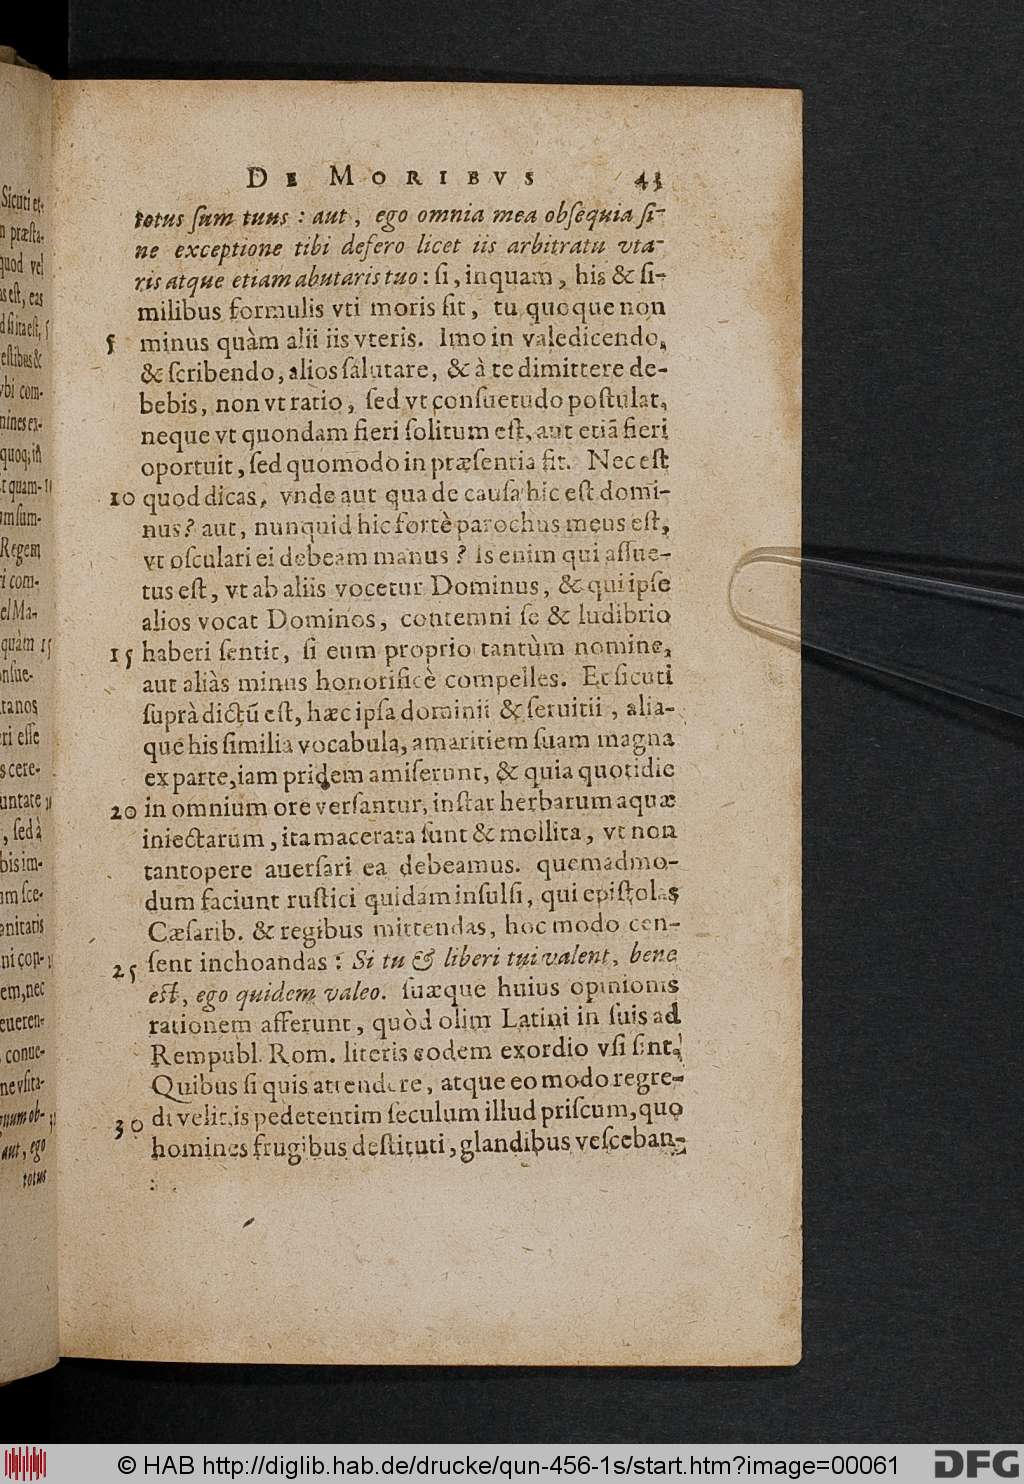 Sicuti et-
n præsta-
quod vel
as est, eas
d si ita est, 5
estibus &
vbi com-
mines ex-
quoq; in
t quam- 10
um sum-
Regem
ri com-
el Ma-
quàm 15
onsue-
tanos
ri esse
s cere-
untate
, sed à
bis im-
am sce-
enitatis
ni con-
em, nec
eueren-
conue-
ne vsita-
gnum ob-
aut, ego
totus
DE MORIBVS 43
totus sum tuus : aut, ego omnia mea obsequia si-
ne exceptione tibi defero licet iis arbitratu vta-
ris atque etiam abutaris tuo : si, inquam, his & si-
milibus formulis vti moris sit, tu quoque non
5 minus quàm alii iis vteris. Imo in valedicendo,
& scribendo, alios salutare, & à te dimittere de-
bebis, non vt ratio, sed vt consuetudo postulat,
neque vt quondam fieri solitum est, aut etiã fieri
oportuit, sed quomodo in præsentia fit. Nec est
10 quod dicas, vnde aut qua de causa hic est domi-
nus? aut, nunquid hic fortè parochus meus est,
vt osculari ei debeam manus? is enim qui assue-
tus est, vt ab aliis vocetur Dominus, & qui ipse
alios vocat Dominos, contemni se & ludibrio
15 haberi sentit, si eum proprio tantùm nomine,
aut aliàs minus honorificè compelles. Et sicuti
suprà dictũ est, hæc ipsa dominii & seruitii, alia-
que his similia vocabula, amaritiem suam magna
ex parte, iam pridem amiserunt, & quia quotidie
20 in omnium ore versantur, instar herbarum aquæ
iniectarum, ita macerata sunt & mollita, vt non
tantopere auersari ea debeamus. quemadmo-
dum faciunt rustici quidam insulsi, qui epistolas
Cæsarib. & regibus mittendas, hoc modo cen-
25 sent inchoandas : Si tu & liberi tui valent, bene
est, ego quidem valeo. suæque huius opinionis
rationem afferunt, quòd olim Latini in suis ad
Rempubl. Rom. literis eodem exordio vsi sint.
Quibus si quis attendere, atque eo modo regre-
30 di velit, is pedetentim seculum illud priscum, quo
homines frugibus destituti, glandibus vesceban-
© HAB http://diglib.hab.de/drucke/qun-456-1s/start.htm?image=00061
DFG